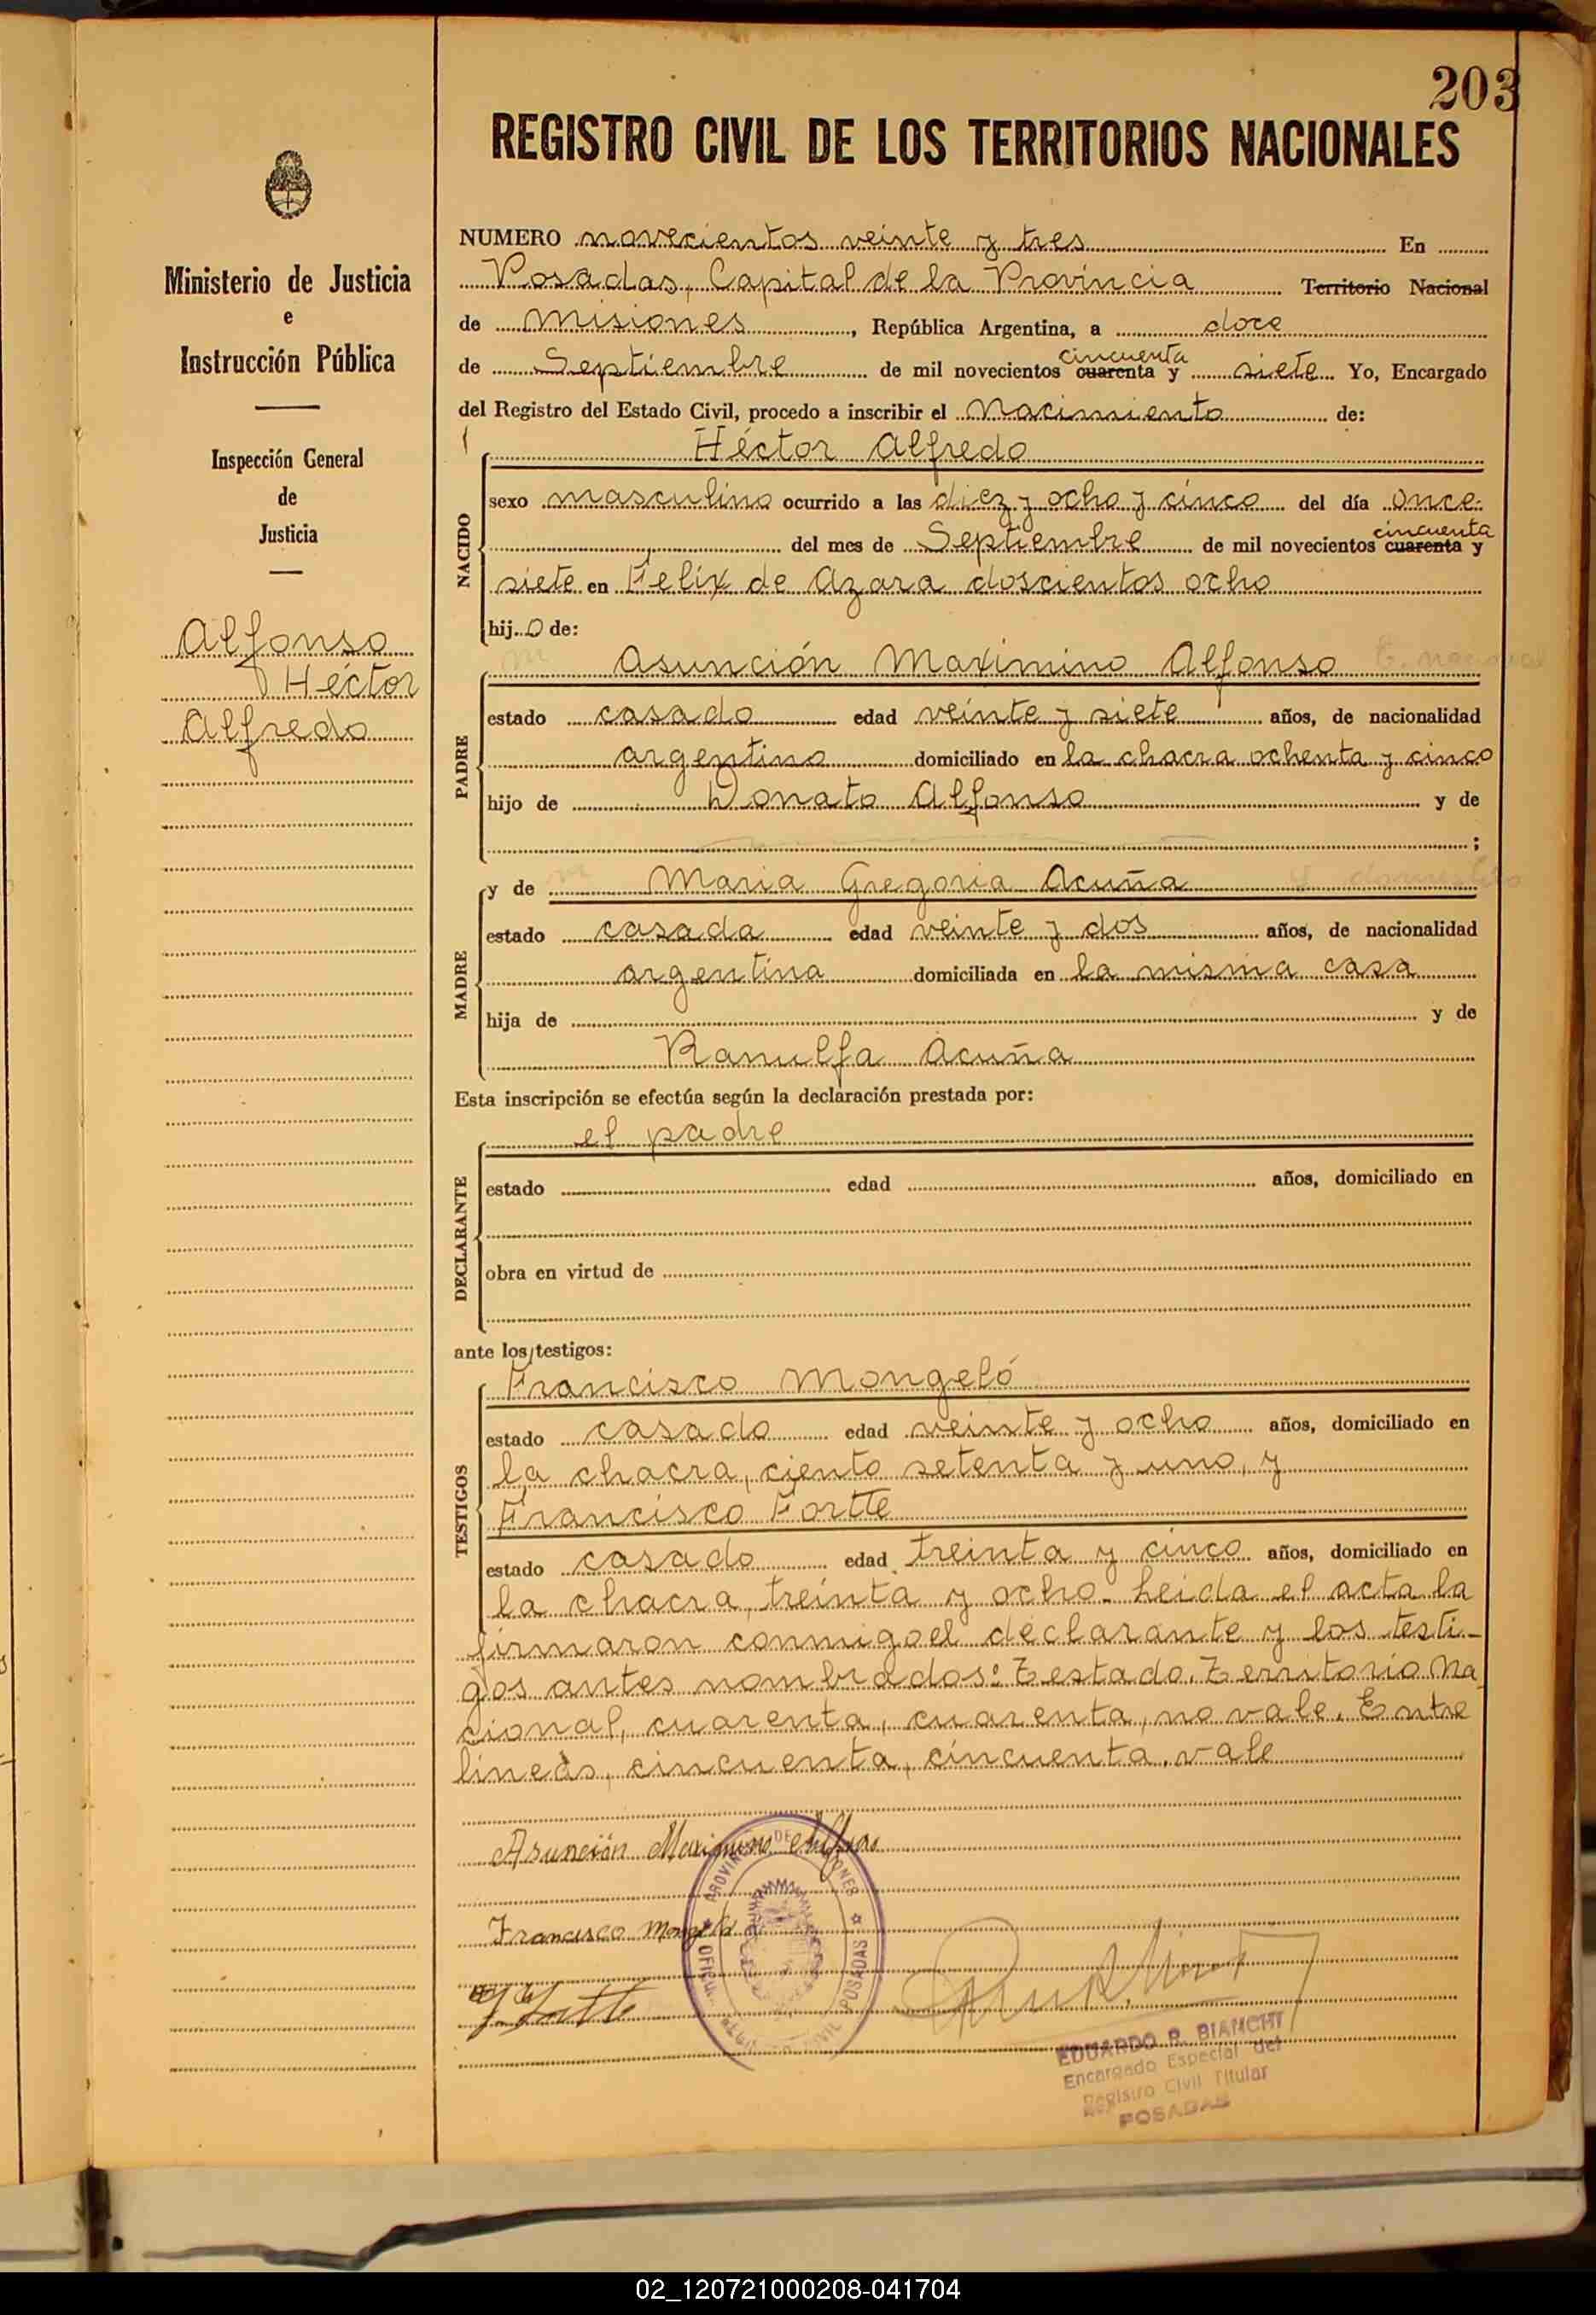 203
REGISTRO CIVIL DE LOS TERRITORIOS NACIONALES
Ministerio de Justicia
e
Instrucción Pública
Inspección General
de
Justicia
Alfonso
Héctor
Alfredo
NUMERO novecientos veinte y tres En
Posadas, Capital de la Provincia Territorio Nacional
de Misiones, República Argentina, a doce
cincuenta
de Septiembre de mil novecientos cuarenta y siete Yo, Encargado
del Registro del Estado Civil, procedo a inscribir el Nacimiento de:
Héctor Alfredo
NACIDO
sexo masculino ocurrido a las diez y ocho y cinco del día once
cincuenta
del mes de Septiembre de mil novecientos cuarenta y
siete en Félix de Azara doscientos ocho
hij o de:
Asunción Maximino Alfonso
PADRE
estado casado edad veinte y siete años, de nacionalidad
argentino domiciliado en la chacra ochenta y cinco
hijo de Donato Alfonso y de
;
y de Maria Gregoria Acuña
MADRE
estado casada edad veinte y dos años, de nacionalidad
argentina domiciliada en la misma casa
hija de y de
Ranulfa Acuña
Esta inscripción se efectúa según la declaración prestada por:
el padre
DECLARANTE
estado edad años, domiciliado en
obra en virtud de
ante los testigos:
Francisco Mongeló
TESTIGOS
estado casado edad veinte y ocho años, domiciliado en
la chacra, ciento setenta y uno, y
Francisco Fortte
estado casado edad treinta y cinco años, domiciliado en
la chacra, treinta y ocho. Leida el acta la
firmaron conmigo el declarante y los testi-
gos antes nombrados: Testado. Territorio Na
cional, cuarenta, cuarenta, no vale. Entre
lineas, cincuenta, cincuenta. vale
Asunción Maximino Alfonso
Francisco Mongeló
PROVINCIA DE MISIONES
POSADAS
EDUARDO R. BIANCHI
Encargado Especial del
Registro Civil Titular
POSADAS
02_120721000208-041704